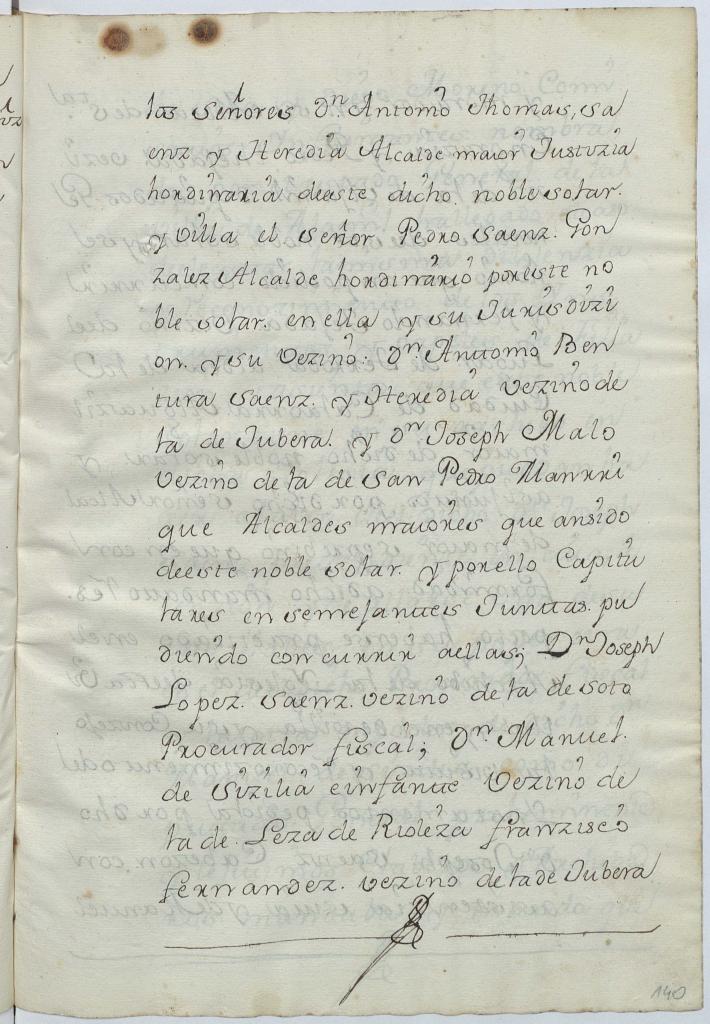 los señores Dn Antonio Thomas, sa
enz y Heredia Alcalde maior Justizia
hordinaria deeste dicho noble solar.
y villa el señor Pedro saenz. Gon
zalez Alcalde hordinario poreste no
ble solar. en ella y su Jurisdizi
on. y su vezino: Dn Anttonio Ben
tura saenz. y Heredia vezino de
la de Jubera. y Dn Joseph Malo
vezino de la de san Pedro Manrri
que Alcaldes maiores que ansido
deeste noble solar. y porello Capitu
lares en semejanttes Junttas. pu
diendo concurrir aellas; Dn Joseph
Lopez. saenz. vezino de la de soto
Procurador fiscal; Dn Manuel.
de sizilia einfantte vezino de
la de. Leza de Rioleza franzisco
fernandez. vezino de lade Jubera
140